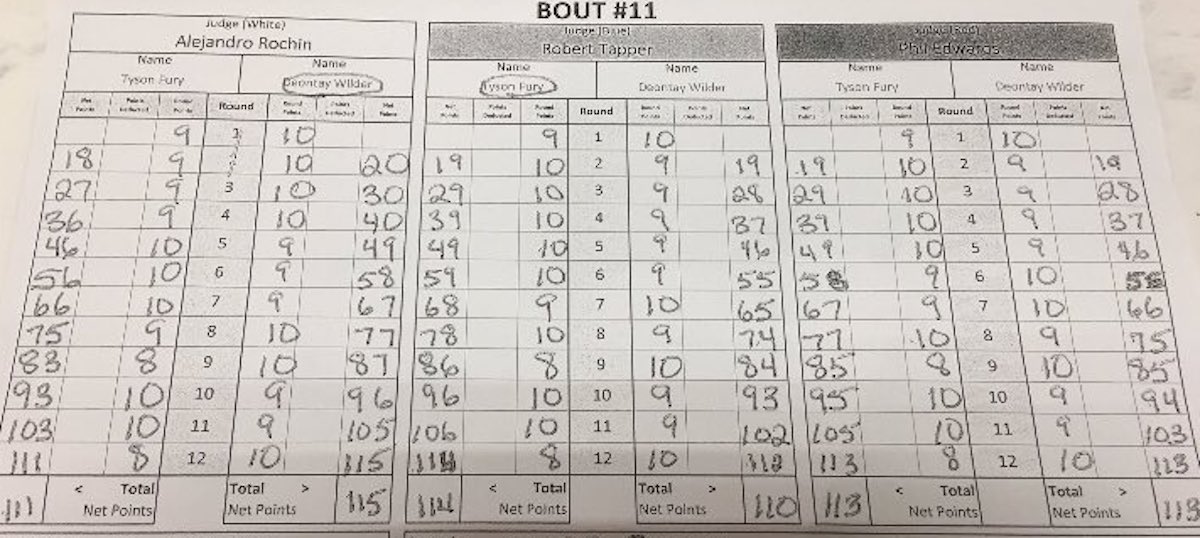 BOUT #11
Judge (White) Judge (Blue) Judge (Red)
Alejandro Rochin Robert Tapper Phil Edwards
Name Name Name Name Name Name
Tyson Fury Deontay Wilder Tyson Fury Deontay Wilder Tyson Fury Deontay Wilder
Net Points Points Deducted Round Points Round Round Points Points Deducted Net Points Net Points Points Deducted Round Points Round Round Points Points Deducted Net Points Net Points Points Deducted Round Points Round Round Points Points Deducted Net Points
9 1 10 9 1 10 9 1 10
18 9 2 10 20 19 10 2 9 19 19 10 2 9 19
27 9 3 10 30 29 10 3 9 28 29 10 3 9 28
36 9 4 10 40 39 10 4 9 37 39 10 4 9 37
46 10 5 9 49 49 10 5 9 46 49 10 5 9 46
56 10 6 9 58 59 10 6 9 55 58 9 6 10 56
66 10 7 9 67 68 9 7 10 65 67 9 7 10 66
75 9 8 10 77 78 10 8 9 74 77 10 8 9 75
83 8 9 10 87 86 8 9 10 84 85 8 9 10 85
93 10 10 9 96 96 10 10 9 93 95 10 10 9 94
103 10 11 9 105 106 10 11 9 102 105 10 11 9 103
111 8 12 10 115 114 8 12 10 112 113 8 12 10 113
111 < Total Net Points Total > Net Points 115 114 < Total Net Points Total > Net Points 110 113 < Total Net Points Total > Net Points 113